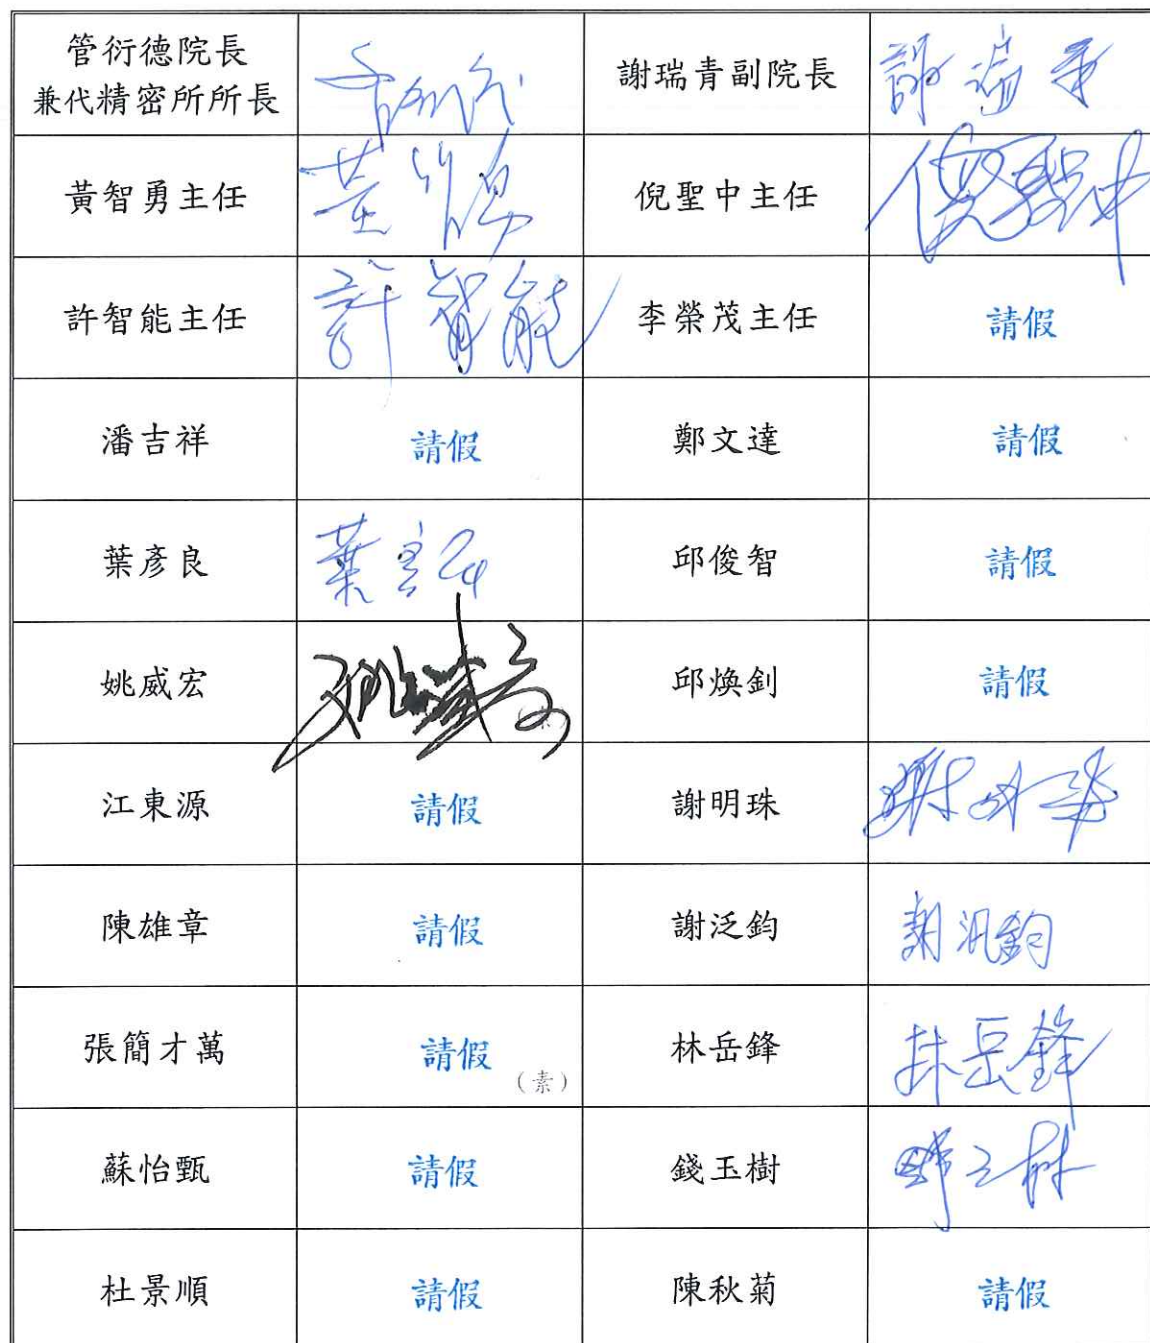 管衍德院長
兼代精密所所長
謝瑞青副院長
謝瑞青
黃智勇主任
黃智勇
倪聖中主任
倪聖中
許智能主任
許智能
李榮茂主任
請假
潘吉祥
請假
鄭文達
請假
葉彥良
葉彥良
邱俊智
請假
姚威宏
姚威宏
(素)
邱煥釗
請假
江東源
請假
謝明珠
謝明珠
陳雄章
請假
謝泛鈞
謝汎鈞
張簡才萬
請假
(素)
林岳鋒
林岳鋒
蘇怡甄
請假
錢玉樹
錢玉樹
杜景順
請假
陳秋菊
請假